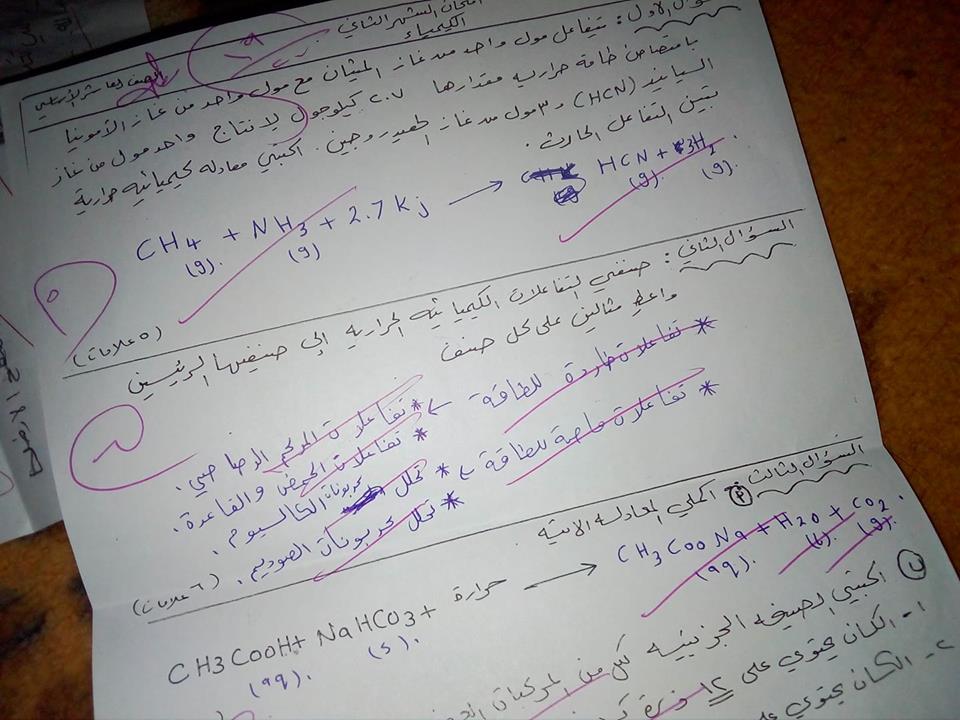 امتحان الشهر الثاني
الكيمياء
السؤال الأول: تتفاعل مول واحد من غاز الميثان مع مول واحد من غاز الأمونيا
بامتصاص طاقة حرارية مقدارها ٢.٧ كيلوجول لإنتاج واحد مول من غاز
السيانيد (HCN) و ٣ مول من غاز الهيدروجين. اكتبي معادلة كيميائية حرارية
تبين التفاعل الحادث.
CH4 + NH3 + 2.7 Kj → HCN + 3H2.
(g). (g) (g). (g).
(٥ علامات)
السؤال الثاني: صنفي التفاعلات الكيميائية الحرارية إلى صنفيها الرئيسين
واعط مثالين على كل صنف
* تفاعلات طاردة للطاقة ← * تفاعلات المركم الرصاصي.
* تفاعلات الحمض والقاعدة.
* تفاعلات ماصة للطاقة ← * تحلل كربونات الكالسيوم.
* تحلل كربونات الصوديوم.
(٦ علامات)
السؤال الثالث: أكملي المعادلة الاتية
CH3COOH + NaHCO3 + حرارة → CH3COONa + H2O + CO2.
(aq). (s). (aq). (l). (g).
اكتبي الصيغة الجزيئية لكل من المركبات
١- الكان يحتوي على ١٢ ذرة
٢- الكان يحتوي على